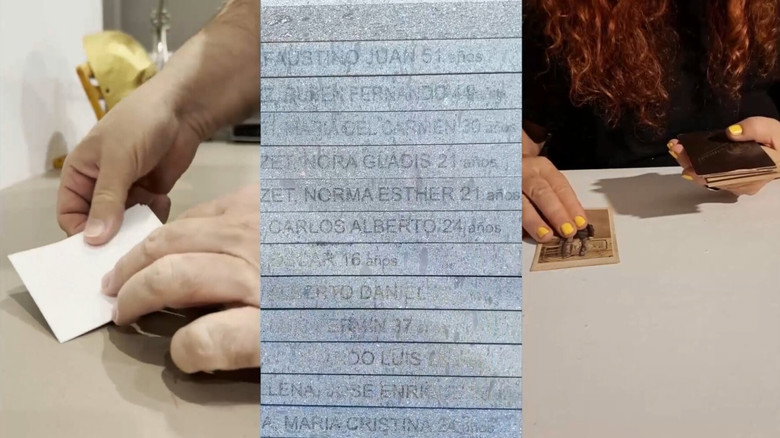 FAUSTINO JUAN 51 años
Z, RUBEN FERNANDO
MARIA DEL CARMEN 30 años
ZET, NORA GLADIS 21 años
ZET, NORMA ESTHER 21 años
CARLOS ALBERTO 24 años
16 años
ALBERTO DANIEL
FERMIN 37
DO LUIS
LENA, JOSE ENRI
A, MARIA CRISTINA 24 años